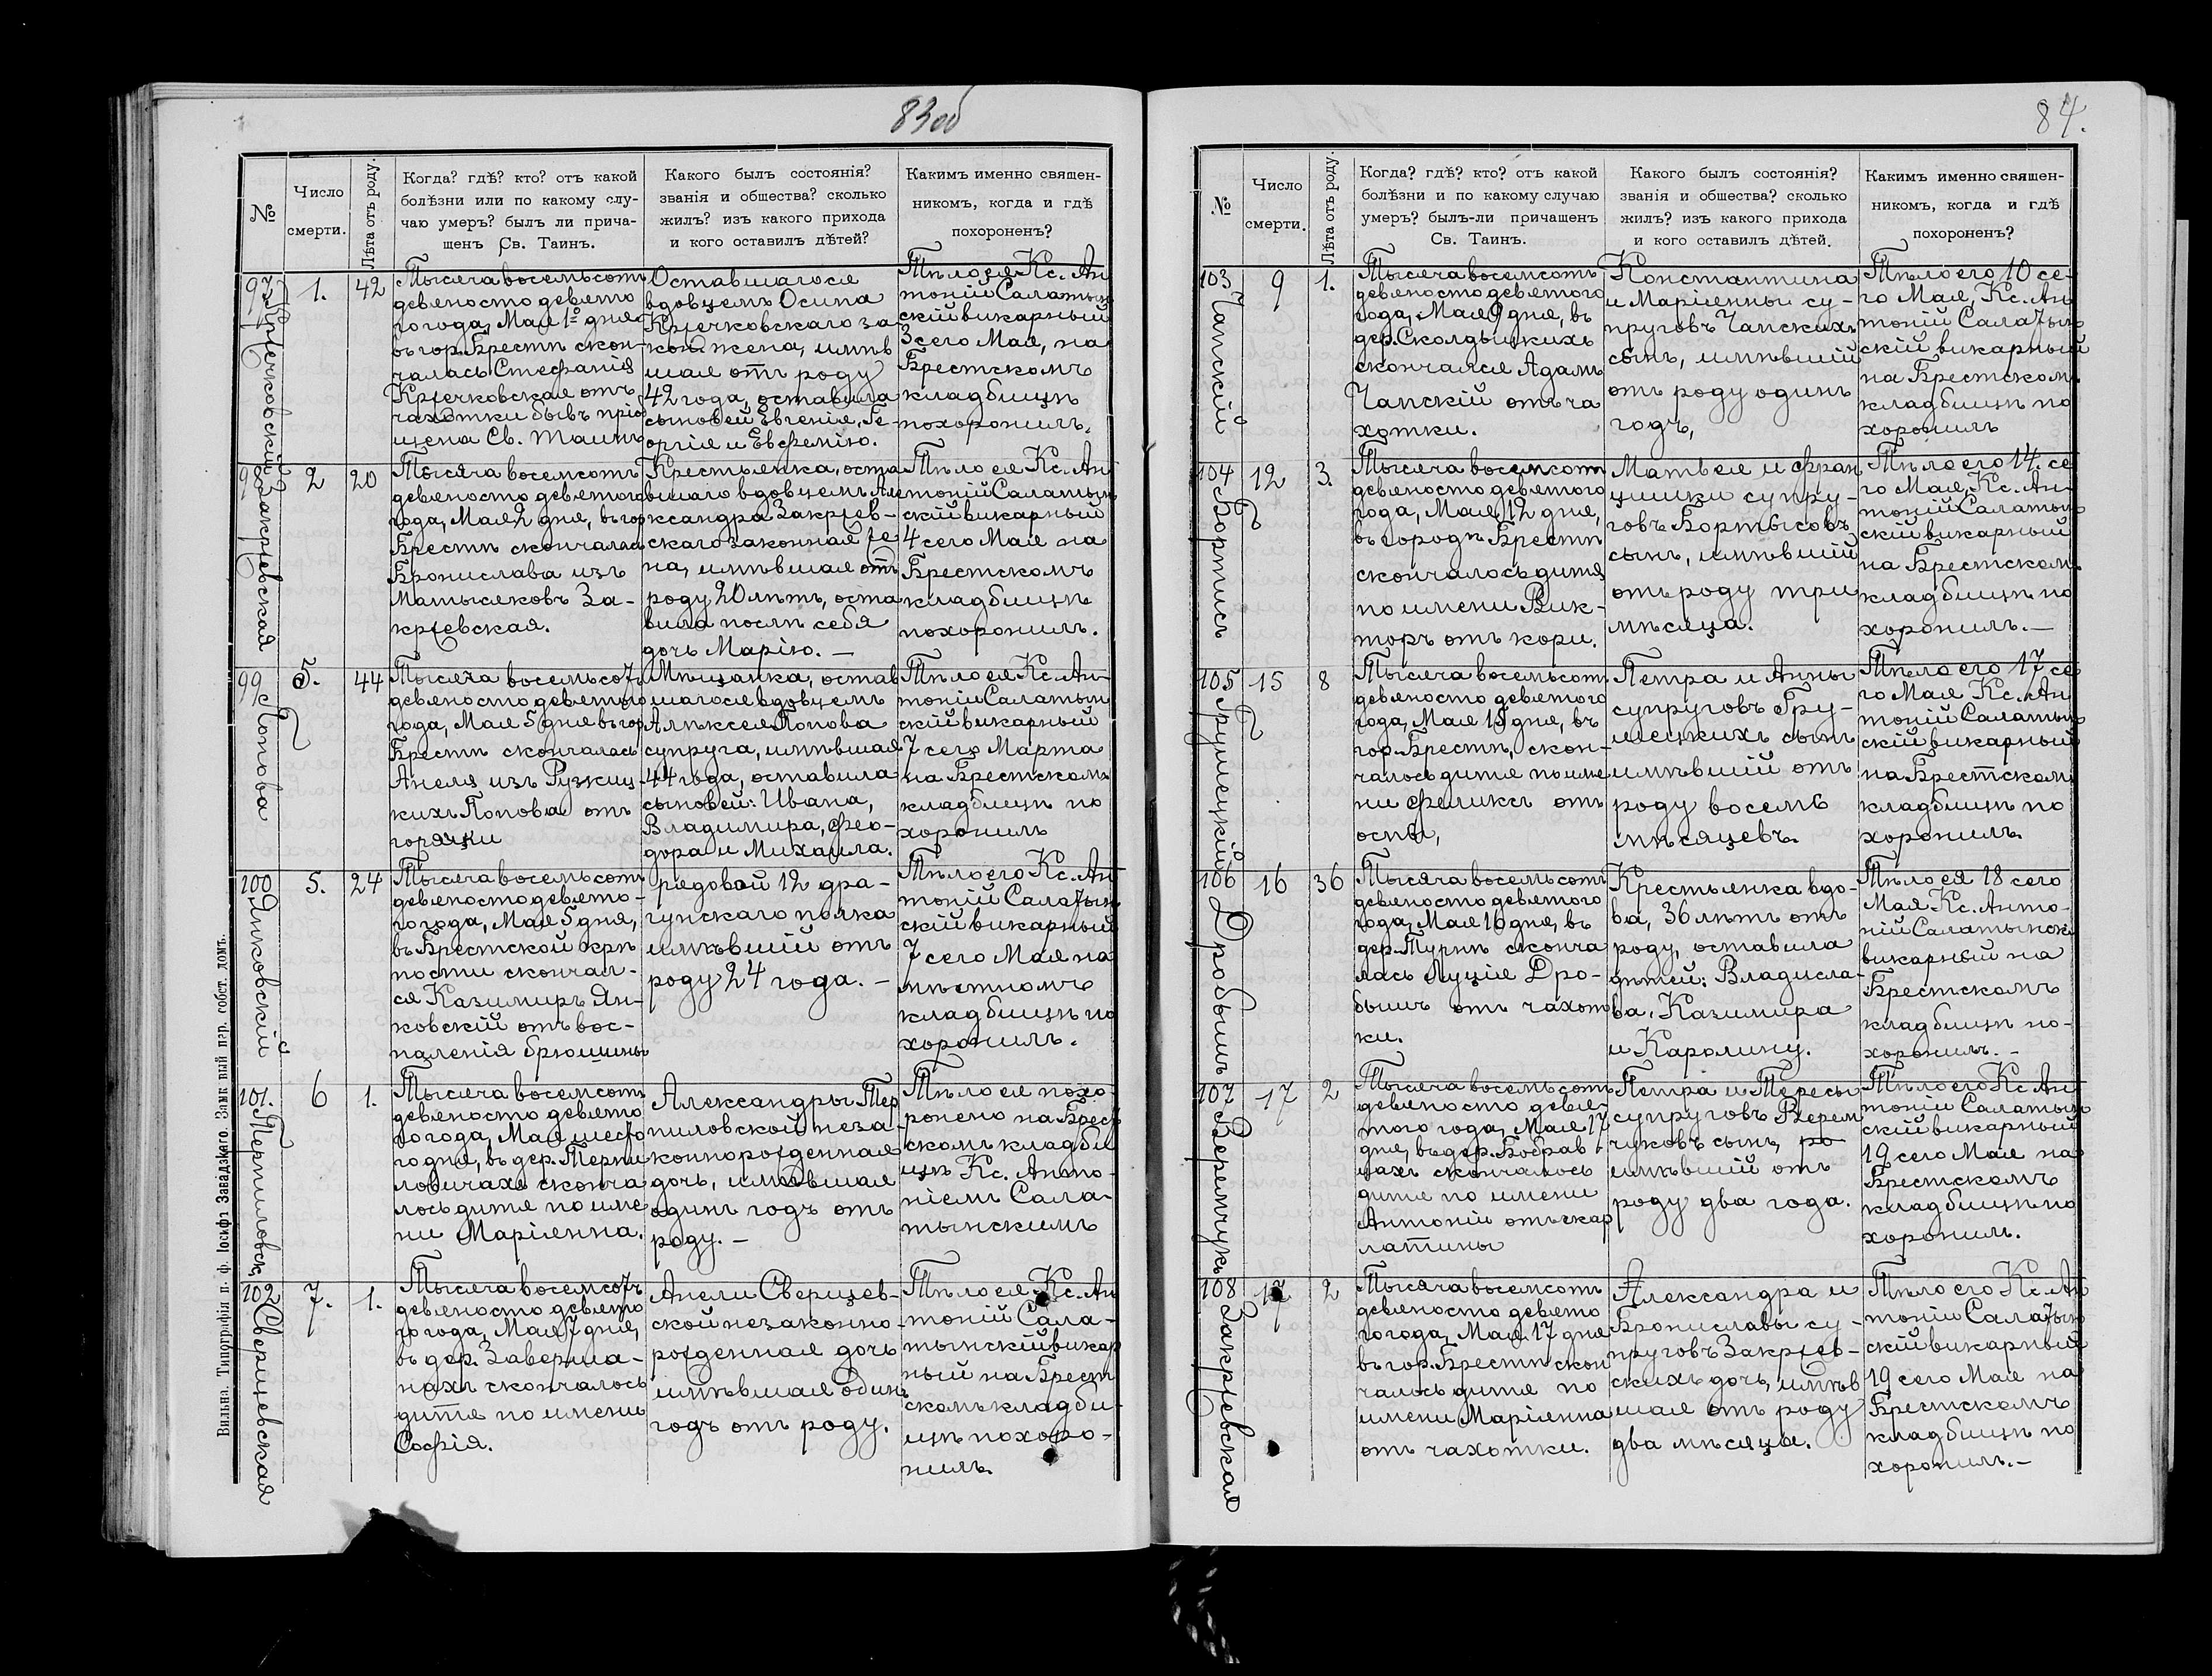 83об
№
Число
смерти.
Лѣта отъ роду.
Когда? гдѣ? кто? отъ какой
болѣзни или по какому слу-
чаю умеръ? былъ ли прича-
щенъ Св. Таинъ.
Какого былъ состоянія?
званія и общества? сколько
жилъ? изъ какого прихода
и кого оставилъ дѣтей?
Какимъ именно священ-
никомъ, когда и гдѣ
похороненъ?
97
1.
42
Тысяча восемьсотъ
девяносто девято
го года, Мая 1º дня
въ гор. Брестѣ скон-
чалась Стефанія
Кржечковская отъ
чахотки бывъ пріо
щена Св. Таинъ
Оставшагося
вдовцемъ Осипа
Кржечковскаго за
кон. жена, имѣв
шая отъ роду
42 года, оставила
сыновей Евгенія, Ге-
оргія и Евфемію.
Тѣло ея Кс. Ан
тоній Салатын
скій викарный
3 сего Мая, на
Брестскомъ
кладбищѣ
похоронилъ.
98
Закржевская
2
20
Тысяча восемьсотъ
девяносто девятого
года, Мая 2 дня, въ гор
Брестѣ скончалась
Бронислава изъ
Матысяковъ За-
кржевская.
Крестьянка, оста
вшаго вдовцемъ Але
ксандра Закржев-
скаго законная же
на, имѣвшая отъ
роду 20 лѣтъ, оста
вила послѣ себя
дочь Марію. —
Тѣло ея Кс. Ан
тоній Салатын
скій викарный
4 сего Мая на
Брестскомъ
кладбищѣ
похоронилъ.
99
Попова
5.
44
Тысяча восемьсотъ
девяносто девятого
года, Мая 5 дня въ гор
Брестѣ скончалась
Анеля изъ Рузкиц
кихъ Попова отъ
горячки
Мѣщанка, остав
шагося вдовцемъ
Алексея Попова
супруга, имѣвшая
44 года, оставила
сыновей: Ивана,
Владимира, Фео-
дора и Михаила.
Тѣло ея Кс. Ан-
тоній Салатын
скій викарный
7 сего Марта
на Брестскомъ
кладбищѣ по
хоронилъ
100
Янковскій
5.
24
Тысяча восемьсотъ
девяносто девято-
го года, Мая 5 дня,
въ Брестской крѣ
пости скончал-
ся Казимиръ Ян-
ковскій отъ вос-
паленія брюшины
рядовой 12 дра-
гунскаго полка
имѣвшій отъ
роду 24 года. —
Тѣло его Кс. Ан
тоній Салатын
скій викарный
7 сего Мая на
мѣстномъ
кладбищѣ по
хоронилъ.
101.
Терпиловск.
6
1.
Тысяча восемсотъ
девяносто девято
го года, Мая шесто
го дня, въ дер. Терпи
ловичахъ сконча
лось дитя по име
ни Маріянна.
Александры Тер
пиловской неза-
коннорожденная
дочь, имѣвшая
одинъ годъ отъ
роду. —
Тѣло ея похо-
ронено на Брест
скомъ кладби
щѣ Кс. Анто-
ніемъ Сала-
тынскимъ
102
Сверщевская
7.
1.
Тысяча восемсотъ
девяносто девято
го года, Мая 7 дня,
въ дер. Заверша-
нахъ скончалось
дитя по имени
Софія.
Анели Сверщев-
ской незаконно-
рожденная дочь
имѣвшая одинъ
годъ отъ роду.
Тѣло ея Кс. Ан
тоній Сала-
тынскій викар
ный на Брест
скомъ кладби-
щѣ похоро-
нилъ.
Вильна. Типографія п. ф. Іосифъ Завадзкаго. Замковый пэр. собст. домъ.
84.
№
Число
смерти.
Лѣта отъ роду.
Когда? гдѣ? кто? отъ какой
болѣзни и по какому случаю
умеръ? былъ-ли причащенъ
Св. Таинъ.
Какого былъ состоянія?
званія и общества? сколько
жилъ? изъ какого прихода
и кого оставилъ дѣтей.
Какимъ именно священ-
никомъ, когда и гдѣ
похороненъ?
103
Чапскій
9
1.
Тысяча восемсотъ
девяносто девятого
года, Мая 9 дня, въ
дер. Сколдыцкихъ
скончался Адамъ
Чапскій отъ ча
хотки.
Константина
и Маріянны су-
пруговъ Чапскихъ
сынъ, имѣвшій
отъ роду одинъ
годъ,
Тѣло его 10 се-
го Мая, Кс. Ан
тоній Салатын
скій викарный
на Брестском.
кладбищѣ по
хоронилъ
104
Бортысъ
12
3.
Тысяча восемсотъ
девяносто девятого
года, Мая 12 дня,
въ городѣ Брестѣ
скончалось дитя
по имени Вик-
торъ отъ кори.
Матвея и Фран
цишки супру-
говъ Бортысовъ
сынъ, имѣвшій
отъ роду три
мѣсяца.
Тѣло его 14. се
го Мая, Кс. Ан-
тоній Салатын
скій викарный
на Брестском.
кладбищѣ по
хоронилъ. —
105
Грушецкій
15
8
Тысяча восемьсотъ
девяносто девятого
года, Мая 15 дня, въ
гор. Брестѣ, скон-
чалось дитя по име
ни Феликсъ отъ
оспы,
Петра и Анны
супруговъ Гру-
шецкихъ сынъ
имѣвшій отъ
роду восемь
мѣсяцевъ.
Тѣло его 17 се
го Мая Кс. Ан
тоній Салатын
скій викарный
на Брестскомъ
кладбищѣ по
хоронилъ.
106
Дробышъ
16
36
Тысяча восемьсотъ
девяносто девятого
года, Мая 16 дня, въ
дер. Турнѣ сконча
лась Луція Дро-
бышъ отъ чахот
ки.
Крестьянка вдо-
ва, 36 лѣтъ отъ
роду, оставила
дѣтей: Владисла-
ва, Казимира
и Каролину.
Тѣло ея 18 сего
Мая Кс. Анто-
ній Салатынск.
викарный на
Брестскомъ
кладбищѣ по-
хоронилъ. —
107
Веремчукъ
17
2
Тысяча восемьсотъ
девяносто девя-
того года, Мая 17
дня, въ дер. Бобрав
цахъ скончалось
дитя по имени
Антоній отъ скар
латины
Петра и Тересы
супруговъ Верем
чуковъ сынъ, ро
имѣвшій отъ
роду два года.
Тѣло его Кс. Ан
тоній Салатын
скій викарный
19 сего Мая на
Брестскомъ
кладбищѣ по
хоронилъ.
108
Закржевская
17
2
Тысяча восемсотъ
девяносто девято
го года, Мая 17 дня
въ гор. Брестѣ скон
чалось дитя по
имени Маріянна
отъ чахотки.
Александра и
Брониславы су-
пруговъ Закржев-
скихъ дочь, имѣв
шая отъ роду
два мѣсяца.
Тѣло его Кс. Ан
тоній Салатын
скій викарный
19 сего Мая на
Брестскомъ
кладбищѣ по
хоронилъ. —